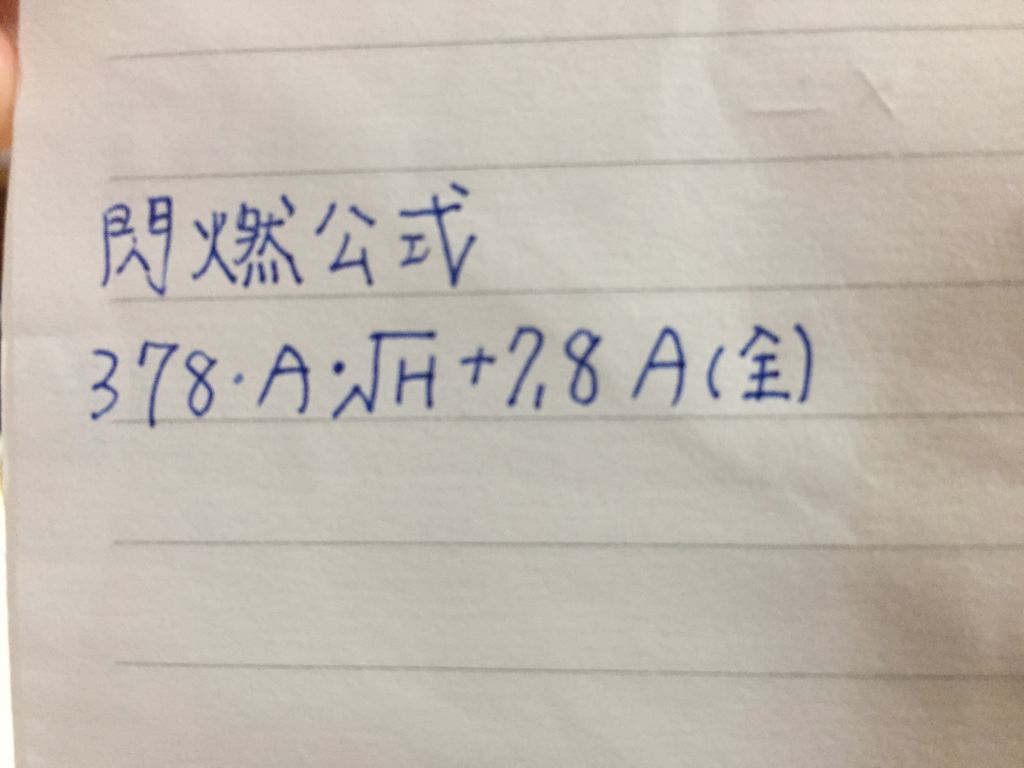 閃燃公式
378·A·√H+7.8 A(全)